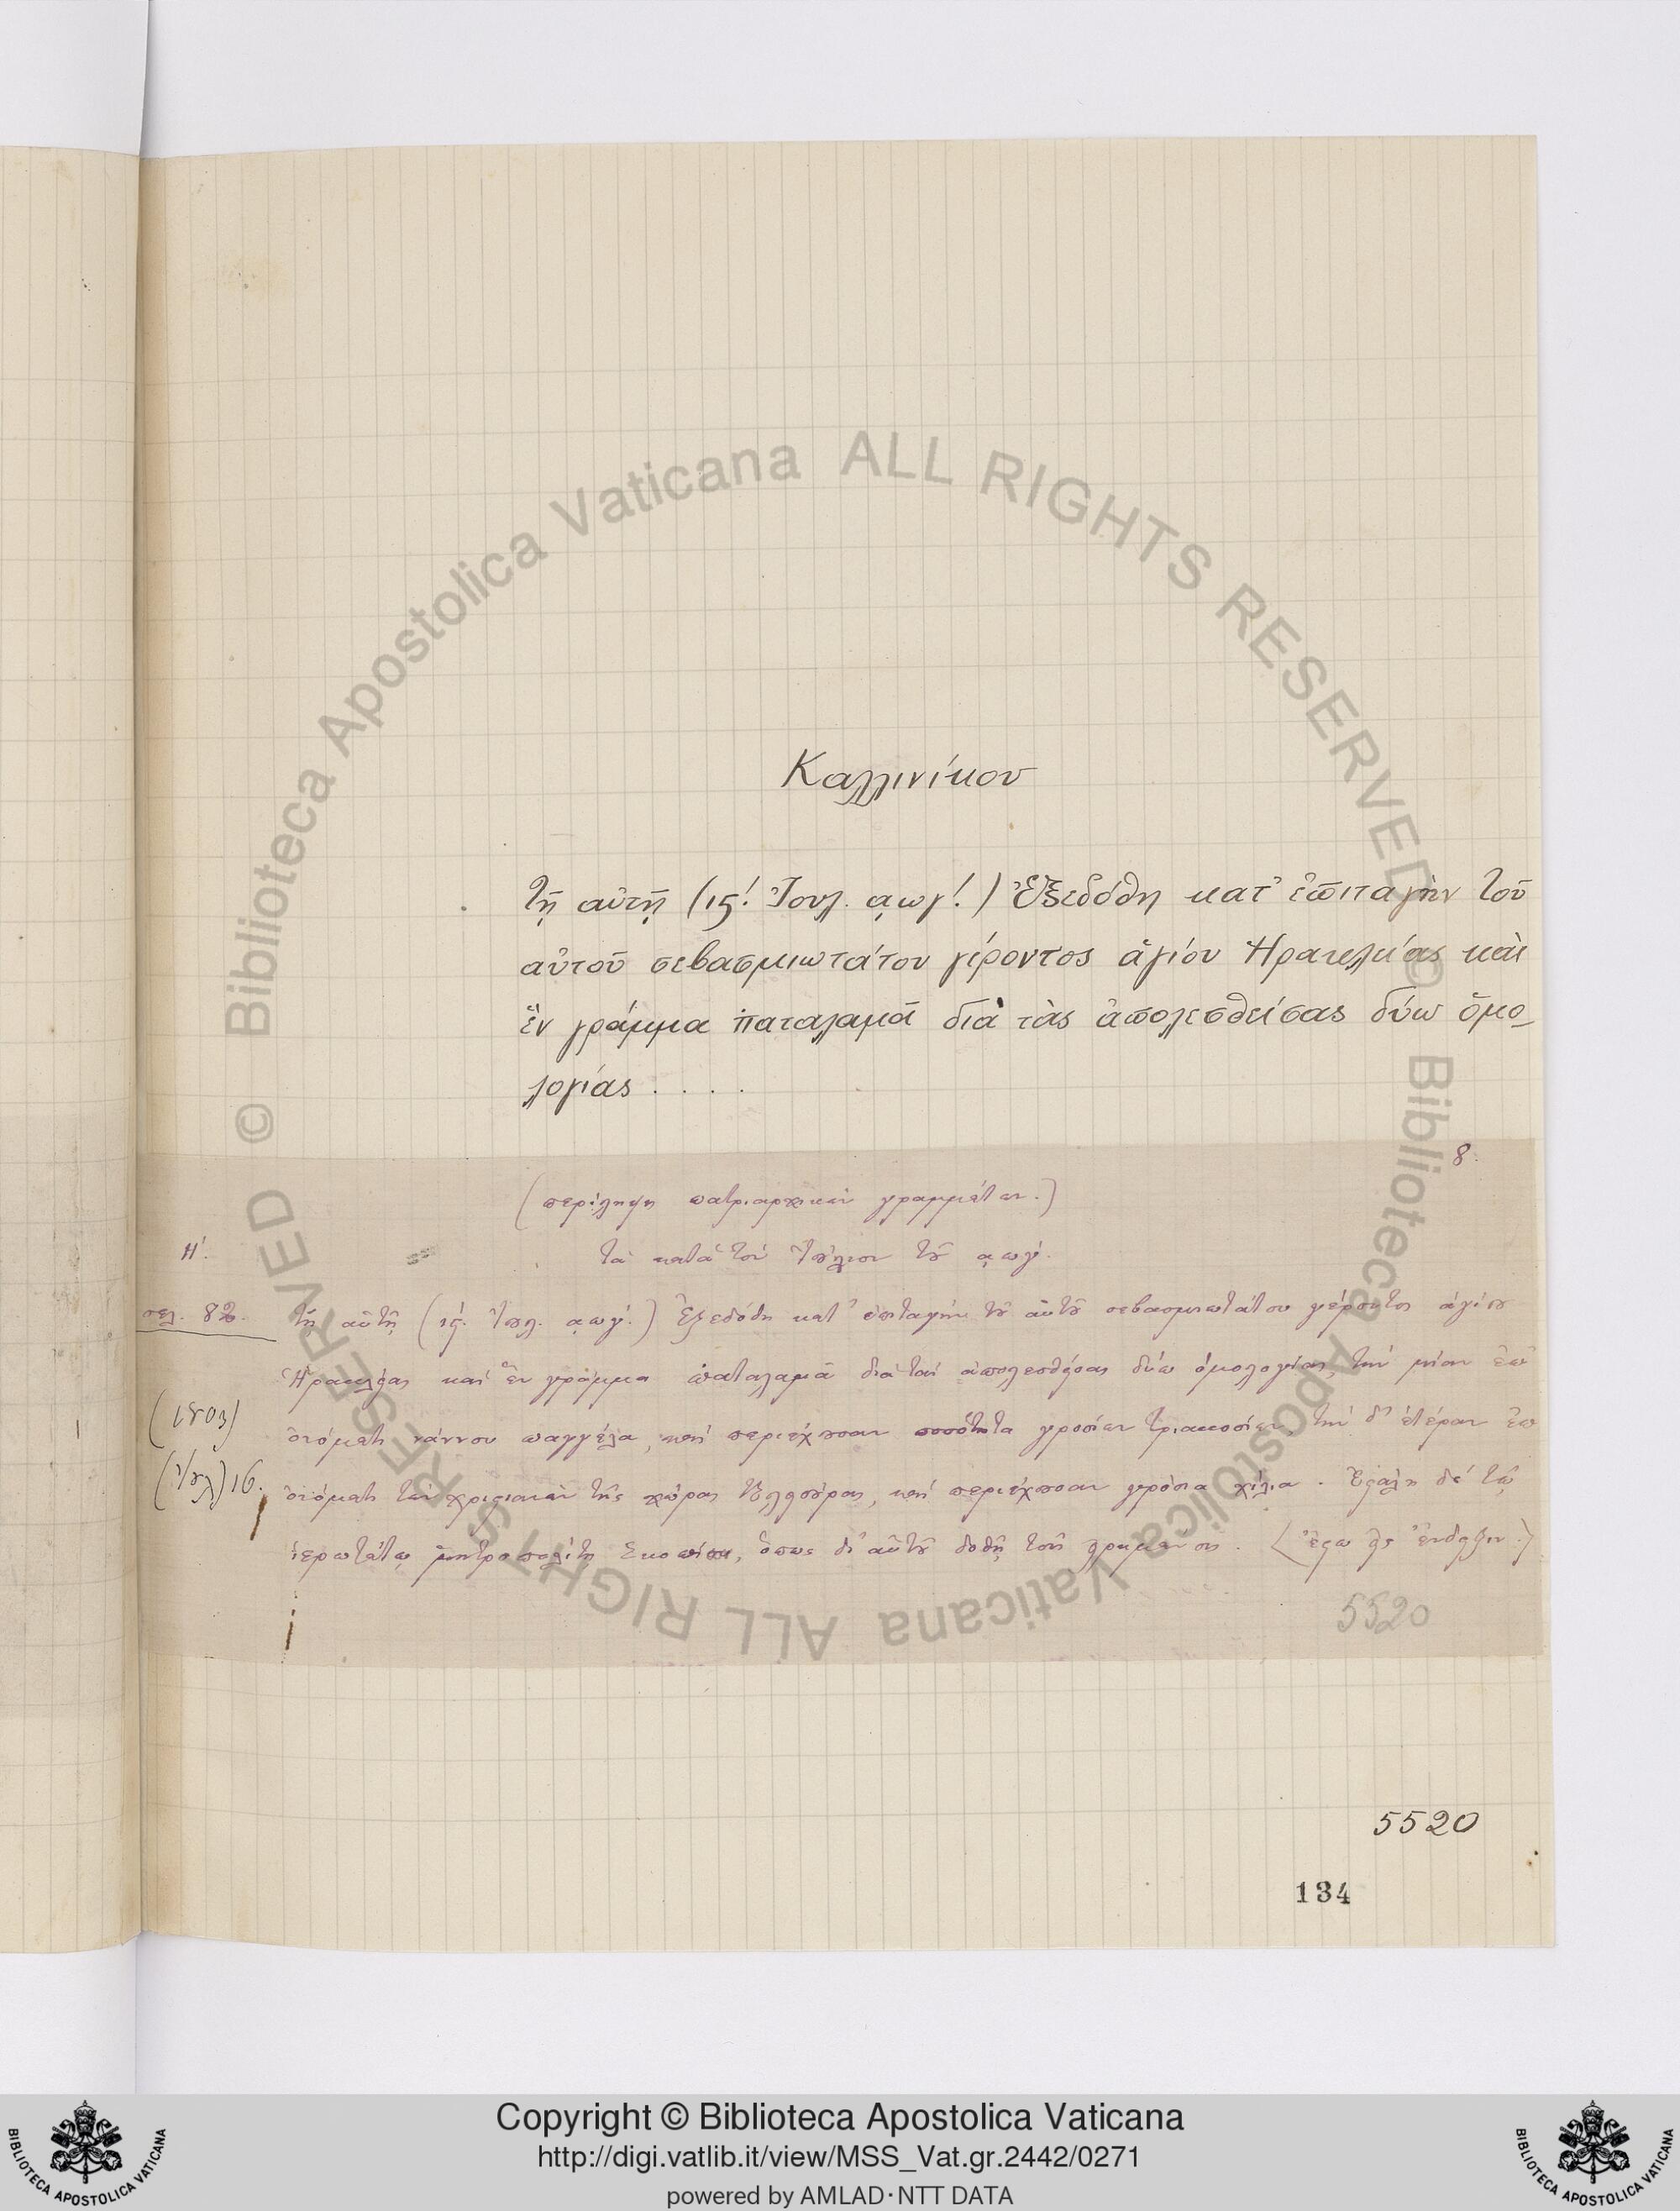 Καλλινίκου
Τῇ αὐτῇ (ιϛ! Ἰουλ. ͵αωγ!) Ἐξεδόθη κατ' ἐπιταγὴν τοῦ
αὐτοῦ σεβασμιωτάτου γέροντος ἁγίου Ἡρακλείας καὶ
ἓν γράμμα παταλαμᾶ διὰ τὰς ἀπολεσθείσας δύω ὁμο-
λογίας . . . .
8.
(περίληψη πατριαρχικῶν γραμμάτων.)
Η'. τὰ κατὰ τὸν Ἰούλιον τοῦ ͵αωγ'.
σελ. 82. τῇ αὐτῇ (ιϛ'. Ἰουλ. ͵αωγ'.) Ἐξεδόθη κατ' ἐπιταγὴν τοῦ αὐτοῦ σεβασμιωτάτου γέροντος ἁγίου
Ἡρακλείας καὶ ἓν γράμμα παταλαμᾶ διὰ τὰς ἀπολεσθείσας δύω ὁμολογίας, τὴν μίαν ἐπ'
(1803) ὀνόματι νάννου παγγέλα, καὶ περιέχουσαν ποσότητα γροσίων τριακοσίων, τὴν δ' ἑτέραν ἐπ'
(Ἰουλ) 16. ὀνόματι τῶν χριστιανῶν τῆς χώρας, καὶ περιέχουσαν γρόσια χίλια. Ἐστάλη δὲ τῷ
ἱερωτάτῳ μητροπολίτῃ Σκοπίων, ὅπως δι' αὐτοῦ δοθῇ τοῖς
5520
5520
134
© Biblioteca Apostolica Vaticana ALL RIGHTS RESERVED
© Biblioteca Apostolica Vaticana ALL RIGHTS RESERVED
Copyright © Biblioteca Apostolica Vaticana
http://digi.vatlib.it/view/MSS_Vat.gr.2442/0271
powered by AMLAD·NTT DATA
BIBLIOTECA APOSTOLICA VATICANA
BIBLIOTECA APOSTOLICA VATICANA